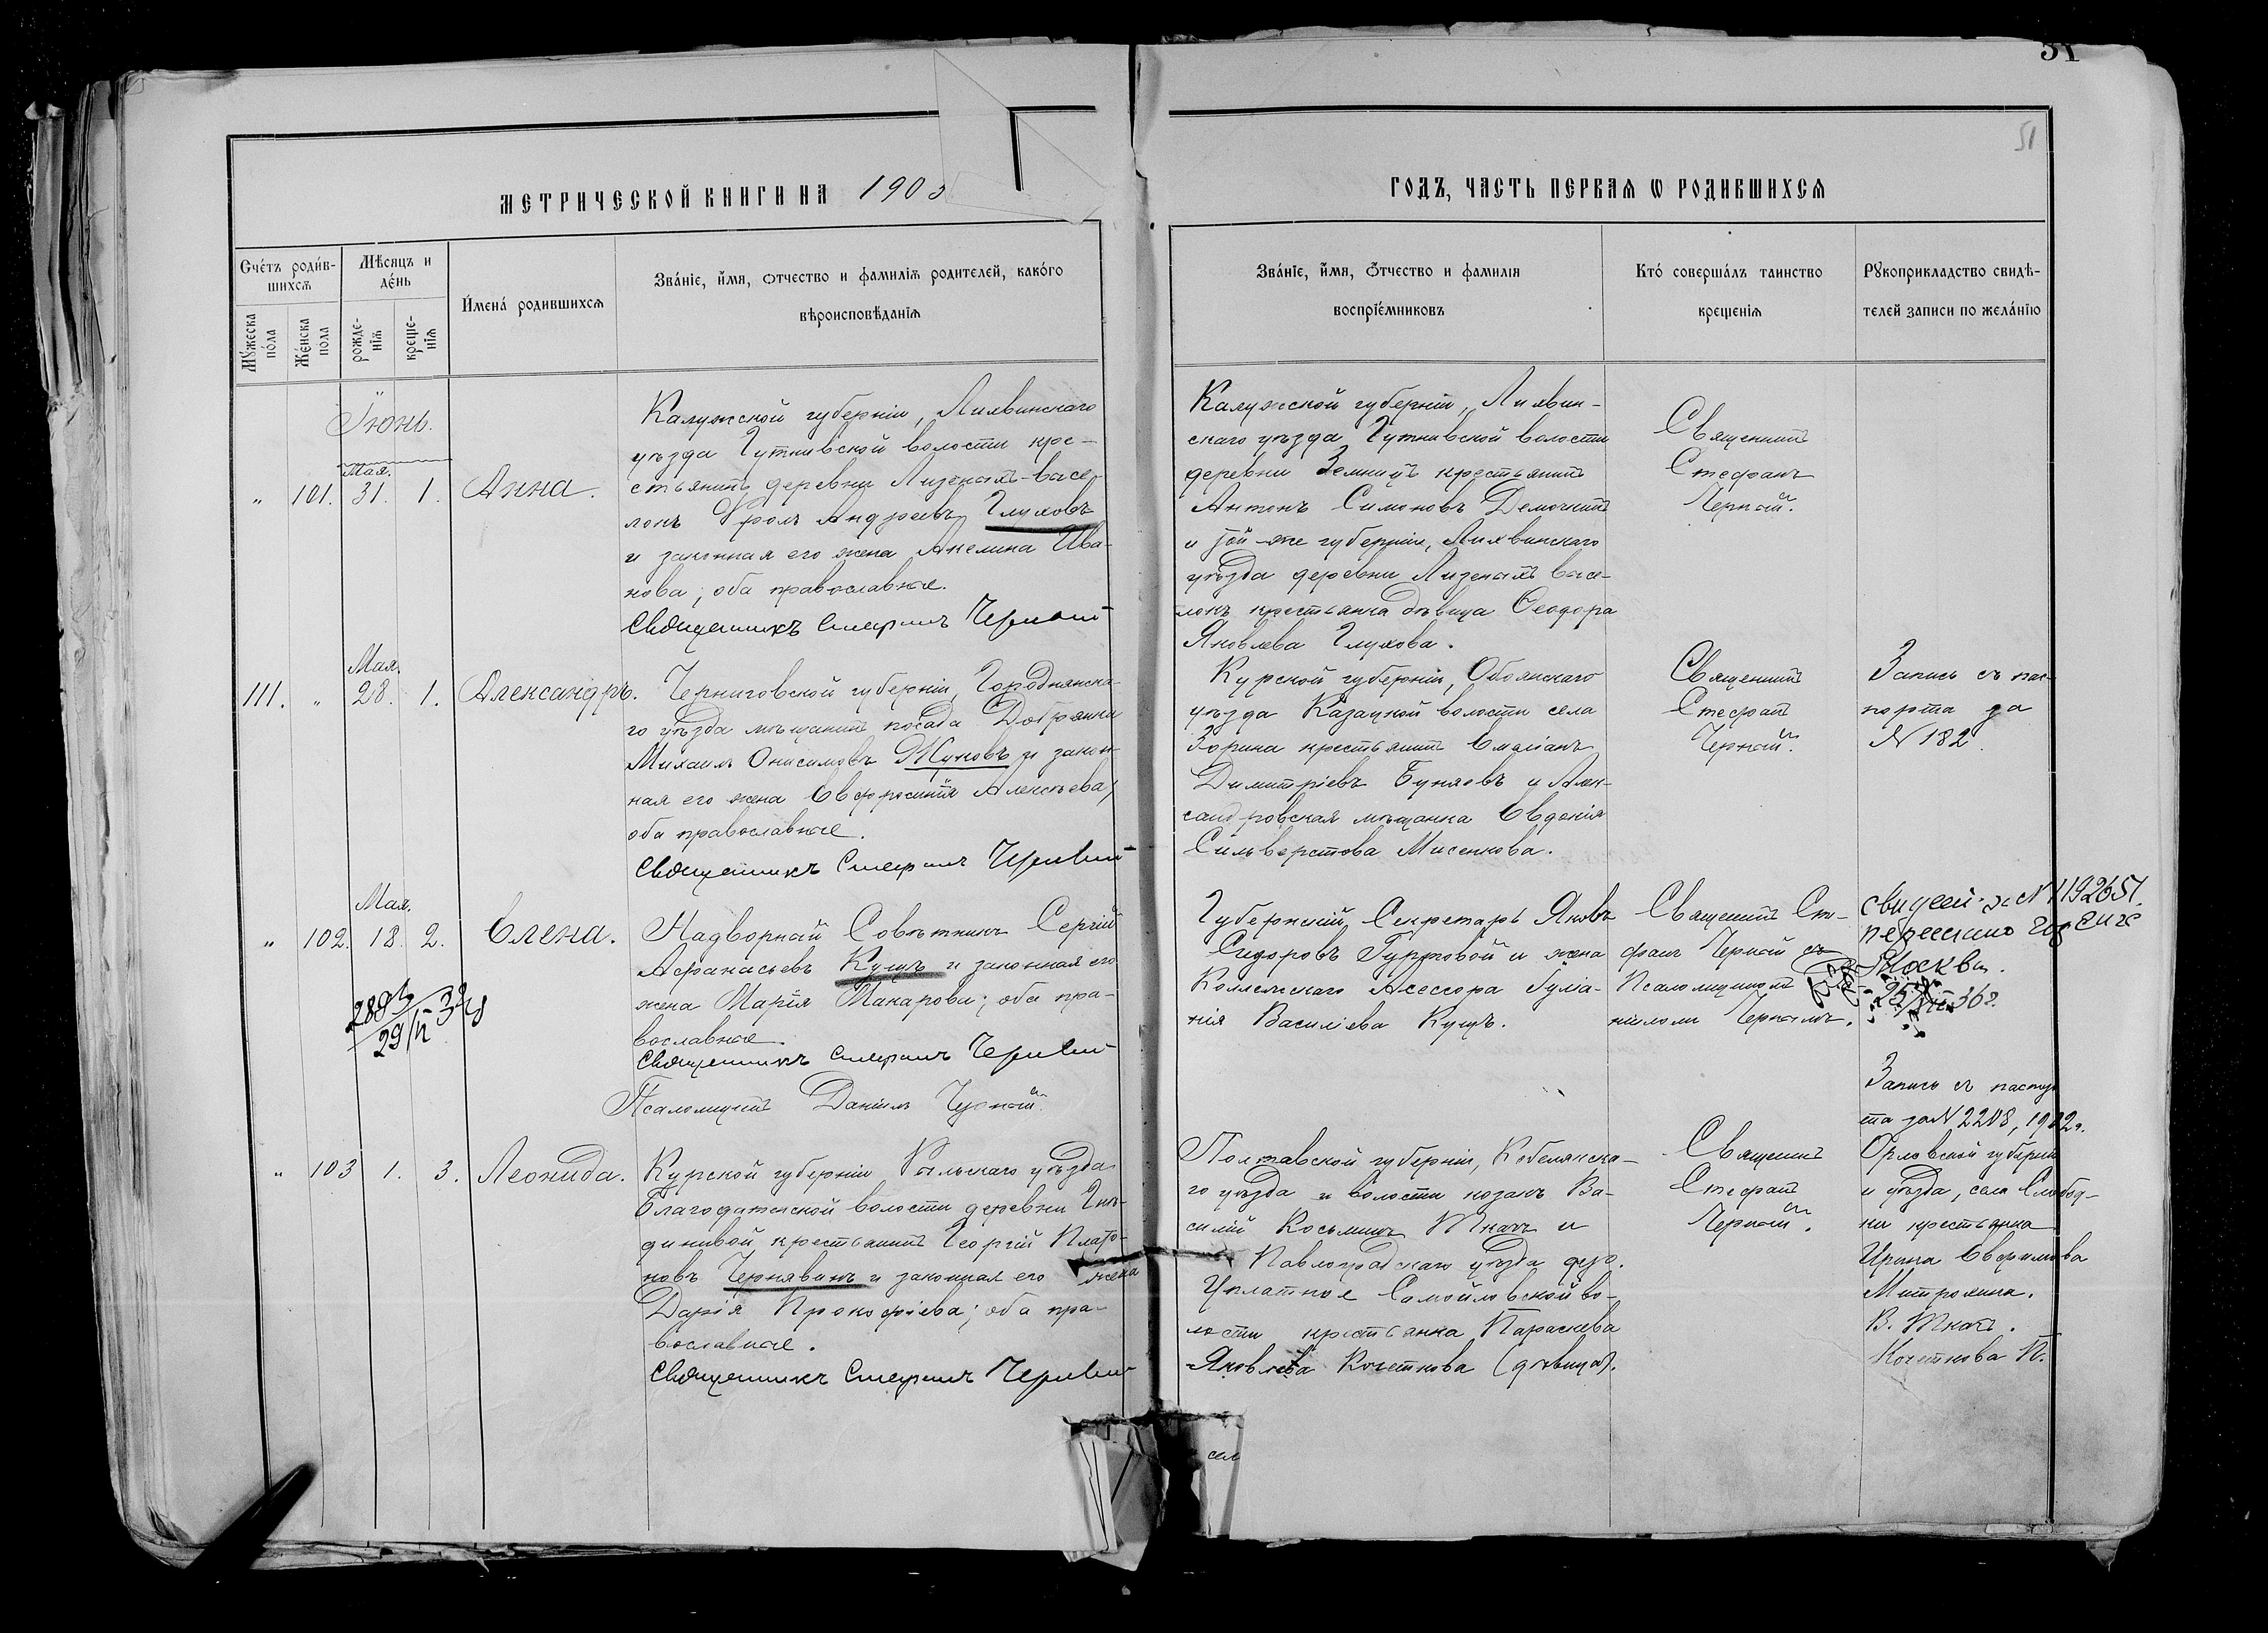 51
51
МЕТРИЧЕСКОЙ КНИГИ НА 1903
ГОДЪ, ЧАСТЬ ПЕРВАЯ Ѡ РОДИВШИХСЯ
Счéтъ роди́в-
шихсѧ
Мѣсяцъ и
дéнь
Мꙋ́жеска
по́ла
Жéнска
пола
рожде-
нїѧ
креще-
нїя
И́мена́ родившихсѧ
Звáнїе, и́мя, ѻтчество и фамилїѧ родителей, како́го
вѣроисповѣданїѧ
Звáнїе, и́мя, ѻтчество и фамилїя
воспрїéмниковъ
Кто́ совершáлъ таинство
крещенїя
Рꙋкоприкладство свидѣ-
телей записи по желáнїю
Іюнь.
Мая.
„ 101. 31. 1. Анна.
Калужской губерніи, Лихвинскаго
уѣзда Гутнивской волости кре-
стьянинъ деревни Лизенахъ-васе-
локъ Фролъ Андреевъ Глуховъ
и законная его жена Акелина Ива-
нова; оба православные.
Священникъ Стефанъ Черный
Калужской губерніи, Лихвин-
скаго уѣзда Гутнивской волости
деревни Земницъ крестьянинъ
Антонъ Симоновъ Демочкинъ
и той-же губерніи, Лихвинскаго
уѣзда деревни Лизенахъ васе-
локъ крестьянка дѣвица Ѳеодора
Яковлева Глухова.
Священникъ
Стефанъ
Черный.
Мая.
111. „ 28. 1. Александръ.
Черниговской губерніи, Городнянска-
го уѣзда мѣщанинъ посада Добрянки
Михаилъ Онисимовъ Жуковъ и закон-
ная его жена Евфросинія Алексѣева;
оба православные.
Священникъ Стефанъ Черный
Курской губерніи, Обоянскаго
уѣзда Казацкой волости села
Зорина крестьянинъ Емеліанъ
Димитріевъ Буняевъ и Алек-
сандровская мѣщанка Евдокія
Сильверстова Мисенкова.
Священникъ
Стефанъ
Черный.
Запись съ пас-
порта за
N 182.
Мая.
„ 102. 18. 2. Елена.
2883
29/II 38
Надворный Совѣтникъ Сергій
Афанасьевъ Кущъ и законная его
жена Марія Макарова; оба пра-
вославные.
Священникъ Стефанъ Черный
Псаломщикъ Даніилъ Черный.
Губернскій Секретарь Яковъ
Сидоровъ Гуртовой и жена
Коллежскаго Асессора Іуліа-
нія Василіева Кущъ.
Священникъ Сте-
фанъ Черный съ
Псаломщикомъ
ніиломъ Чернымъ.
N 1192651.
Москва.
36г.
„ 103 1. 3. Леонида.
Курской губерніи Рыльскаго уѣзда
Благодатенской волости деревни
крестьянинъ Георгій Плато-
новъ Чернявинъ и законная его жена
Дарія Прокофіева; оба пра-
вославные.
Священникъ Стефанъ Черный
Полтавской губерніи, Кобелякска-
го уѣзда и волости козакъ Ва-
силій Косьминъ Ткачъ и
Павлоградскаго уѣзда дер.
Уплатное Самойловской во-
лости крестьянка Параскева
Яковлева Кочеткова (дѣвица).
Священникъ
Стефанъ
Черный.
Запись съ паспор
та за N 2208, 1902г.
Орловской губерніи
и уѣзда, села Слобод-
ки крестьянка
Ирина Евфимова
Митрохина.
В. Ткачъ.
Кочеткова П.
сел